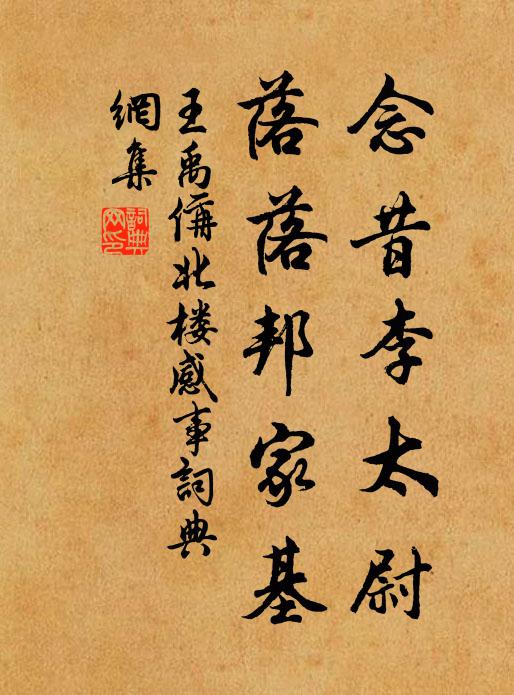 念昔李太尉
落落邦家基
王禹偁北楼感事詞典
網集
詞典
网印